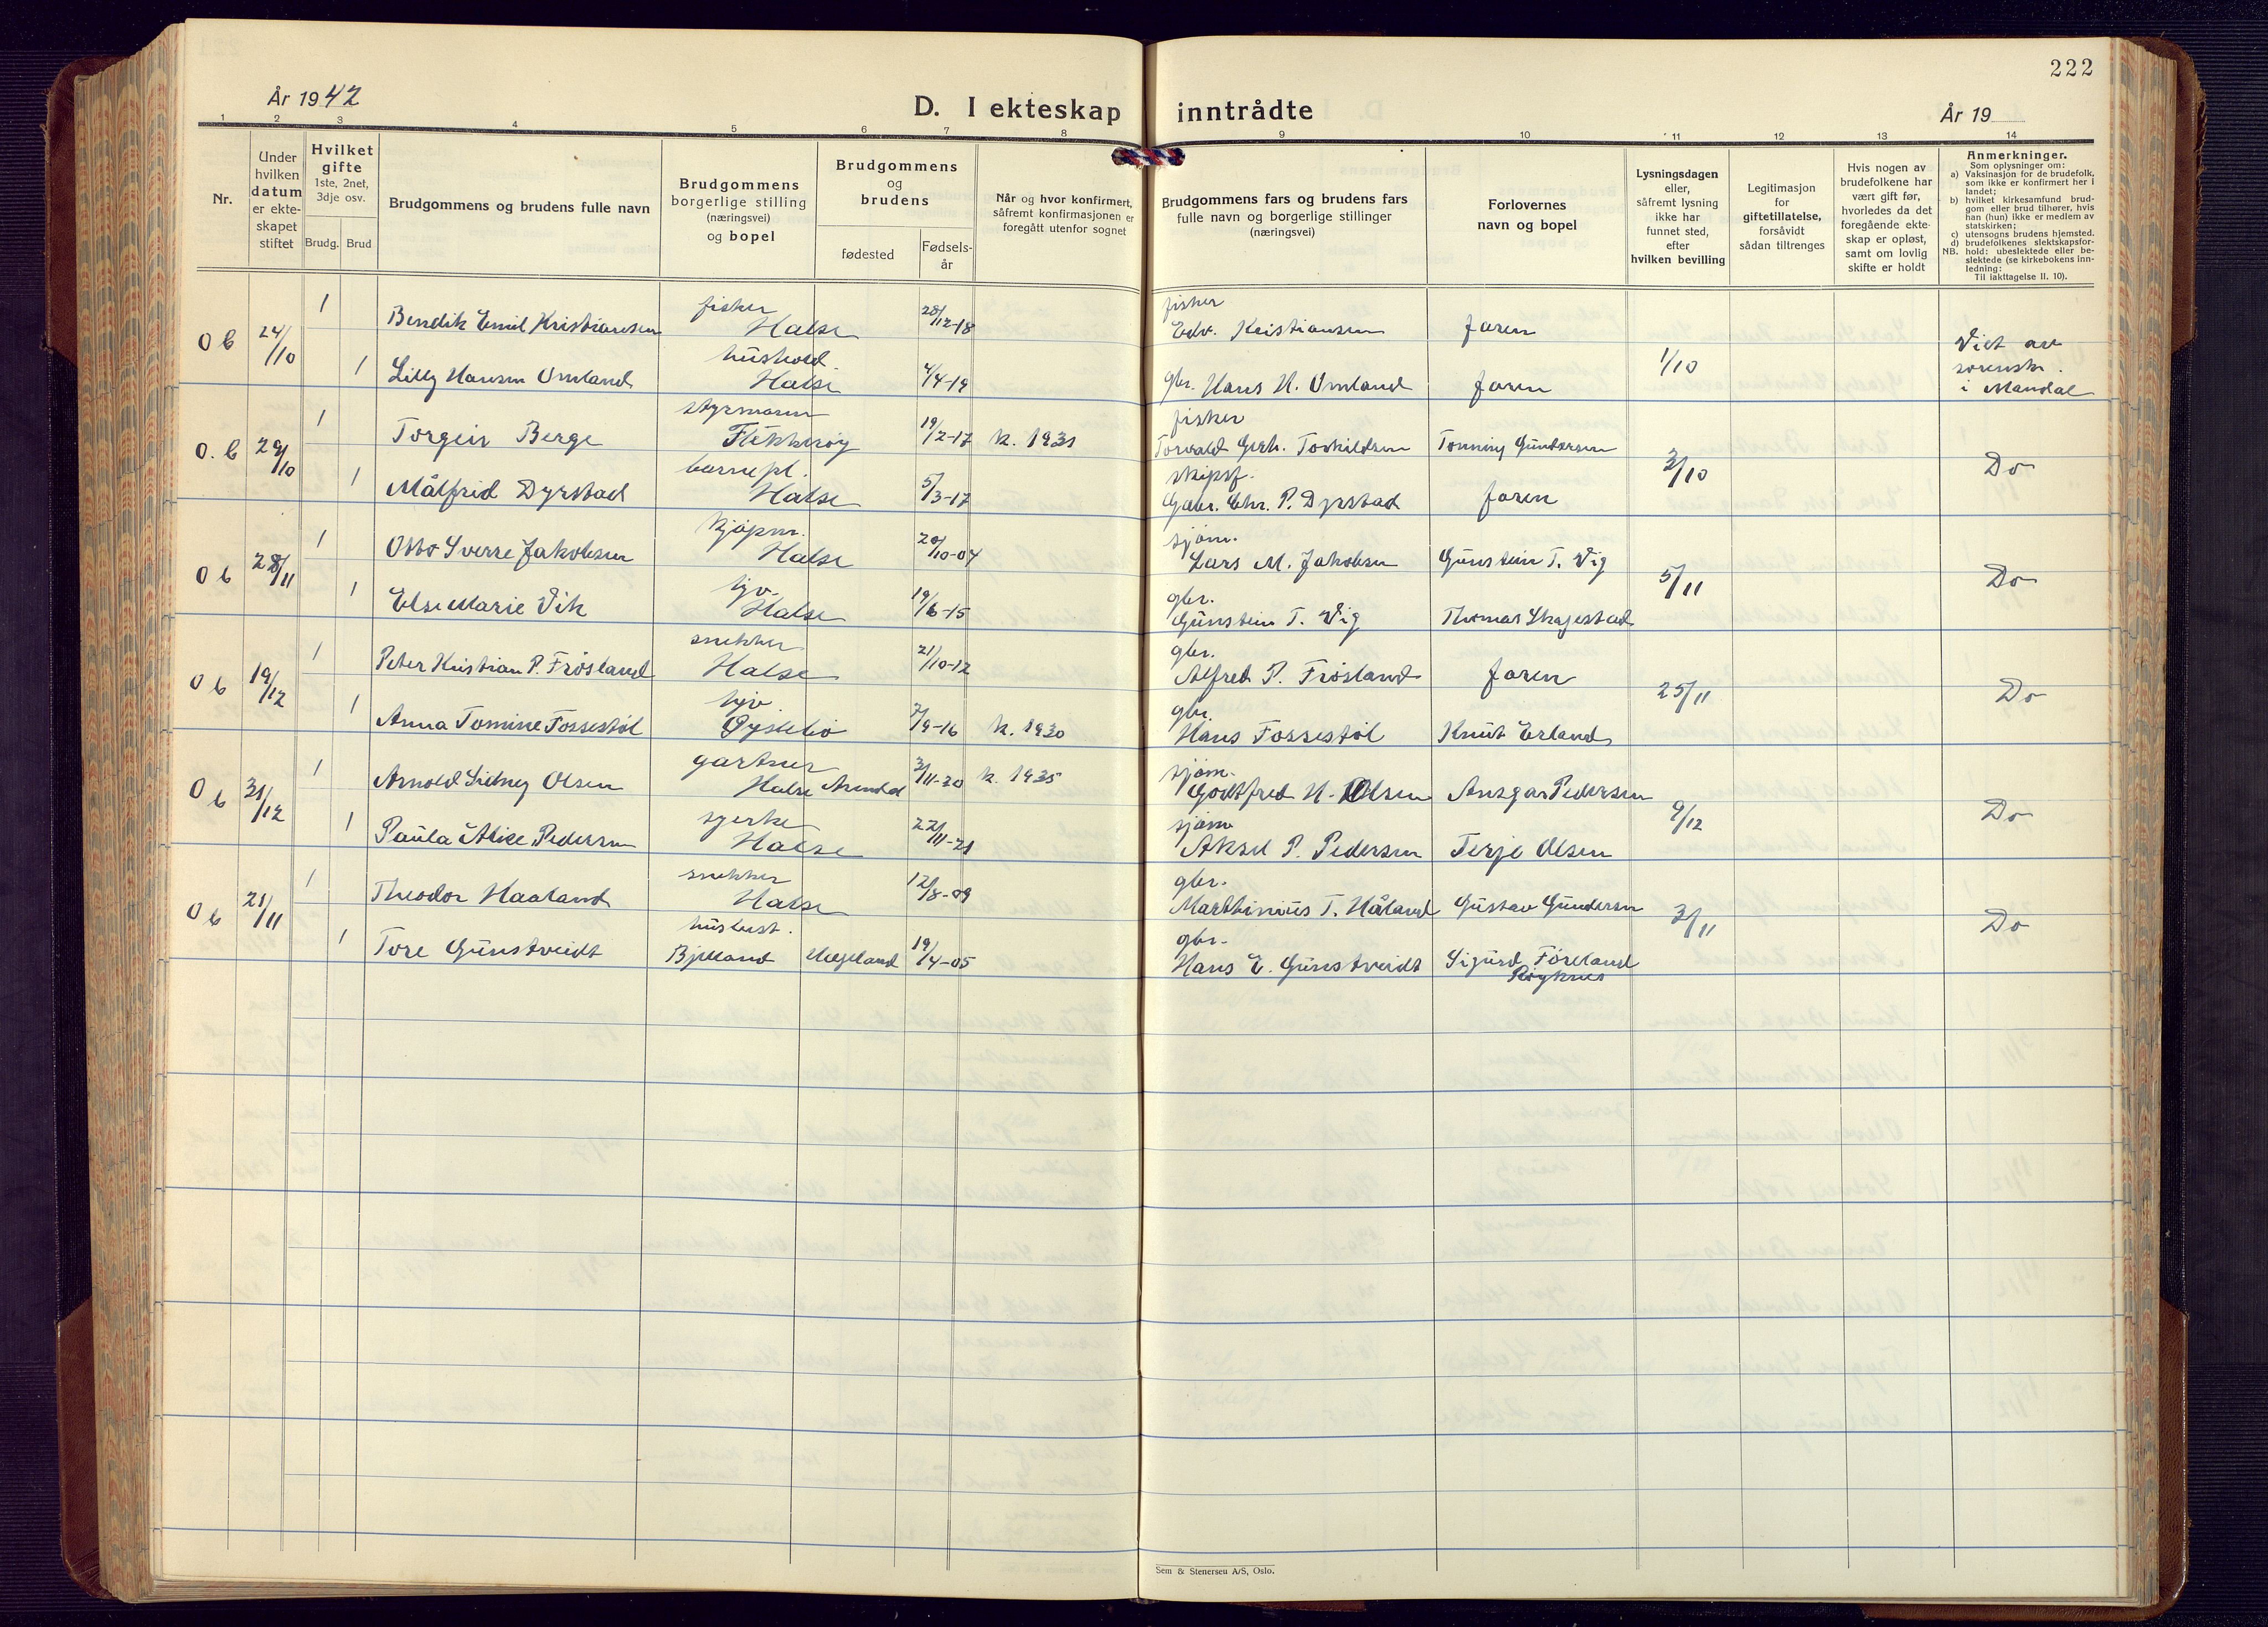 222
År 1942
D. I ekteskap inntrådte
År 19
1 2 3 4 5 6 7 8 9 10 11 12 13 14
Nr.
Under hvilken datum er ekteskapet stiftet
Hvilket gifte
1ste, 2net, 3dje osv.
Brudg. Brud
Brudgommens og brudens fulle navn
Brudgommens borgerlige stilling (næringsvei) og bopel
Brudgommens og brudens
fødested
Fødselsår
Når og hvor konfirmert, såfremt konfirmasjonen er foregått utenfor sognet
Brudgommens fars og brudens fars fulle navn og borgerlige stillinger (næringsvei)
Forlovernes navn og bopel
Lysningsdagen eller, såfremt lysning ikke har funnet sted, efter hvilken bevilling
Legitimasjon for giftetillatelse, forsåvidt sådan tiltrenges
Hvis nogen av brudefolkene har vært gift før, hvorledes da det foregående ekteskap er opløst, samt om lovlig skifte er holdt
Anmerkninger.
Som oplysninger om:
a) Vaksinasjon for de brudefolk, som ikke er konfirmert her i landet;
b) hvilket kirkesamfund brudgom eller brud tilhører, hvis han (hun) ikke er medlem av statskirken;
c) utensogns brudens hjemsted.
d) brudefolkenes slektskapsforhold: ubeslektede eller beslektede (se kirkebokens innledning:
NB. Til iakttagelse II. 10).
O b 24/10 1 Bendik Emil Kristiansen fisker Halse 28/12-18 fisker Edv. Kristiansen faren 1/10 Viet av sorenskr. i Mandal
1 Lilly Hansen Omland hushold. Halse 4/4-19 gbr. Hans H. Omland faren
O. b 29/10 1 Torgeir Berge styrmann Flekkerøy 19/2-17 k. 1931 fisker Torvald Gerh. Torkildsen Tonning Gundersen 3/10 Do
1 Målfrid Dyrstad barnepl. Halse 5/3-17 skipsf. Gabr. Chr. P. Dyrstad faren
O b 28/11 1 Otto Sverre Jakobsen kjøpm. Halse 20/10-04 sjøm. Lars M. Jakobsen Gunstein T. Vig 5/11 Do
1 Else Marie Vik hjv. Halse 19/6-15 gbr. Gunstein T. Vig Thomas Skagestad
O b 19/12 1 Peter Kristian P. Frøsland snekker Halse 21/10-12 gbr. Alfred P. Frøsland faren 25/11 Do
1 Anna Tomine Fossestøl hjv. Øyslebø 7/9-16 k. 1930 gbr. Hans Fossestøl Knut Erland
O b 31/12 1 Arnold Sidney Olsen gartner Halse Arendal 3/11-20 k. 1935 sjøm. Godtfred H. Olsen Ansgar Pedersen 9/12 Do
1 Paula Alice Pedersen syerske Halse 22/11-21 sjøm Aksel P. Pedersen Terje Olsen
O b 21/11 1 Theodor Haaland snekker Halse 12/8-09 gbr. Marthinius T. Håland Gustav Gundersen 3/11 Do
1 Tore Gunstveidt husbest. Bjelland Hægeland 19/4-05 gbr. Hans E. Gunstveidt Sigurd Føreland
Sem & Stenersen A/S, Oslo.